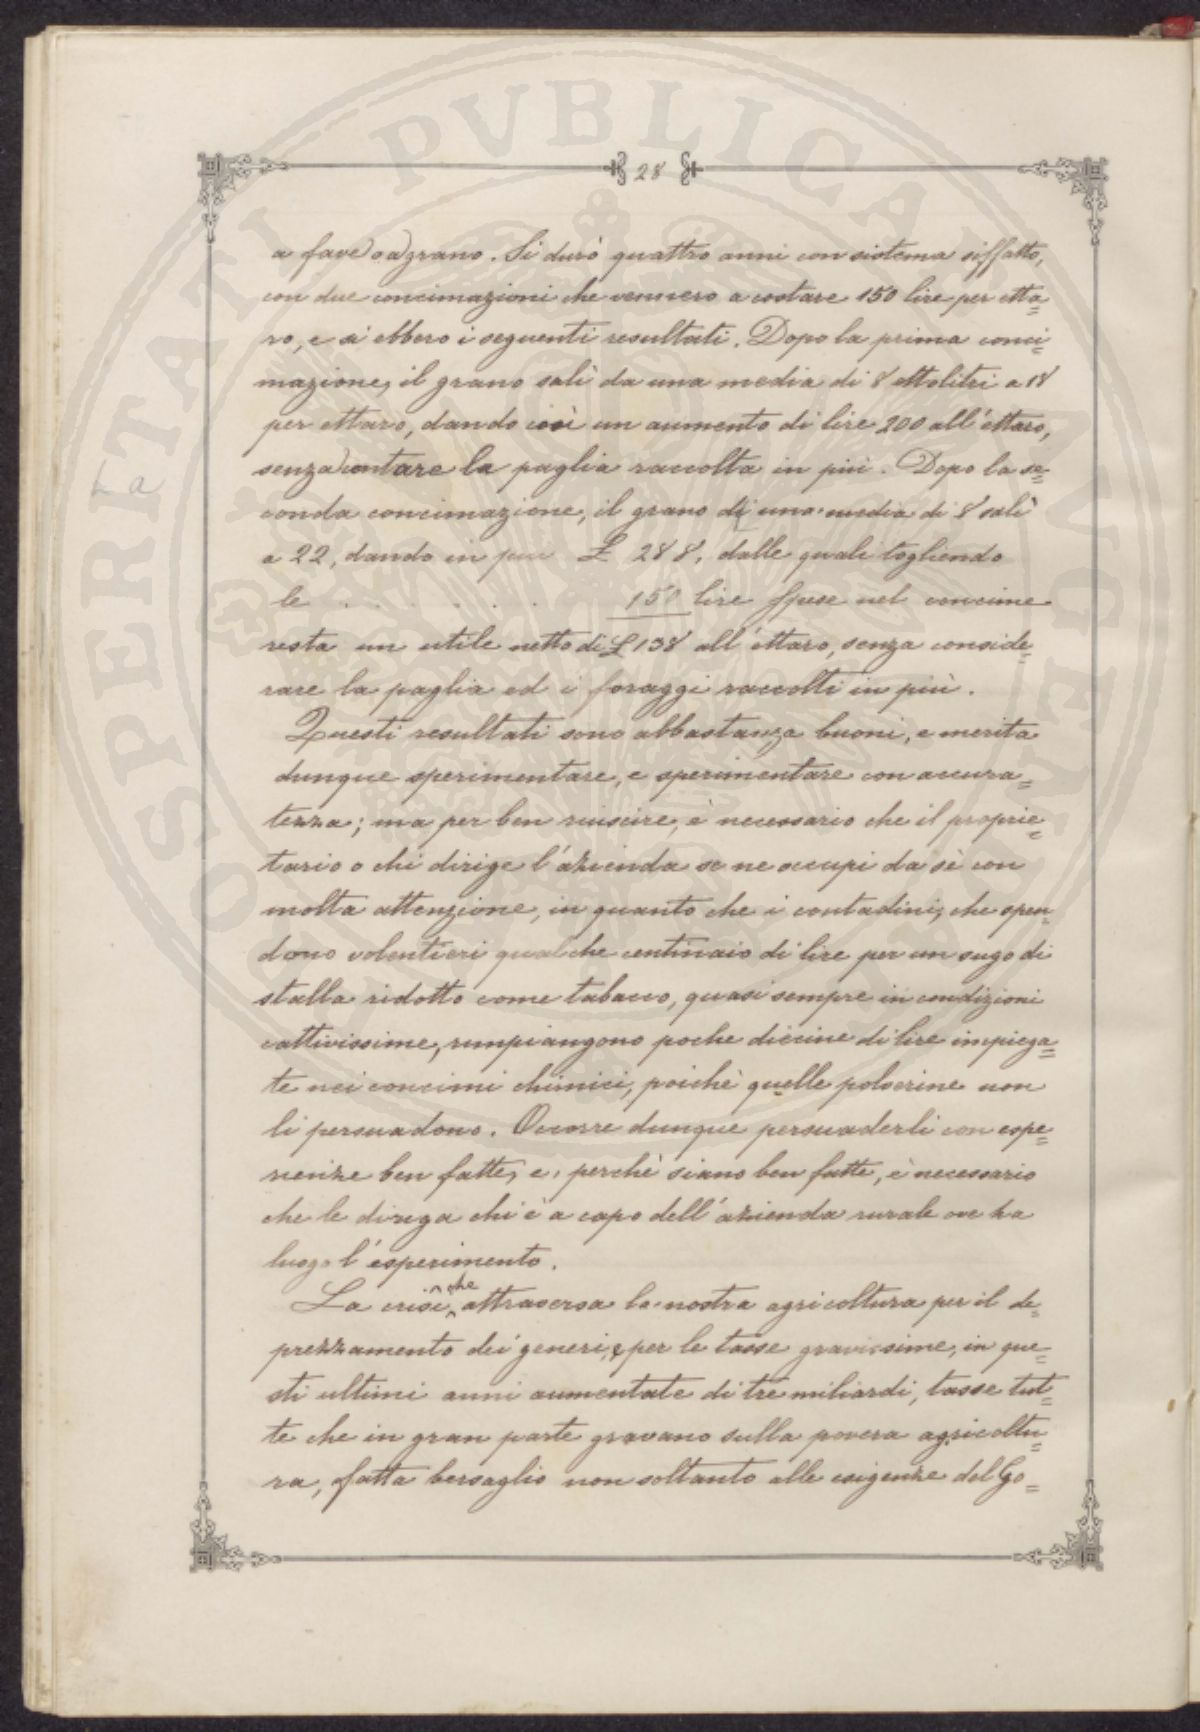 28
a fave o a grano. Si durò quattro anni con sistema siffatto,
con due concimazioni che vennero a costare 150 lire per etta=
ro, e si ebbero i seguenti resultati. Dopo la prima conci=
mazione, il grano salì da una media di 8 ettolitri a 18
per ettaro, dando così un aumento di lire 200 all'ettaro,
senza contare la paglia raccolta in più. Dopo la se=
conda concimazione, il grano di una media di 8 salì
a 22, dando in più £ 288, dalle quali togliendo
le . . . . . . 150 lire spese nel concime
resta un utile netto di £ 138 all'ettaro, senza conside=
rare la paglia ed i foraggi raccolti in più.
Questi resultati sono abbastanza buoni, e merita
dunque sperimentare, e sperimentare con accura=
tezza; ma per ben riuscire, è necessario che il proprie=
tario o chi dirige l'azienda se ne occupi da sè con
molta attenzione, in quanto che i contadini, che spen=
dono volentieri qualche centinaio di lire per un sugo di
stalla ridotto come tabacco, quasi sempre in condizioni
cattivissime, rimpiangono poche diecine di lire impiega=
te nei concimi chimici, poichè quelle polverine non
li persuadono. Occorre dunque persuaderli con espe=
rienze ben fatte, e, perchè siano ben fatte, è necessario
che le diriga chi è a capo dell'azienda rurale ove ha
luogo l'esperimento.
La crisi, che attraversa la nostra agricoltura per il de=
prezzamento dei generi, e per le tasse gravissime, in que=
sti ultimi anni aumentate di tre miliardi, tasse tut=
te che in gran parte gravano sulla povera agricoltu=
ra, fatta bersaglio non soltanto alle esigenze del Go=
La
SPERITATI PVBLICAE AVGENDAE